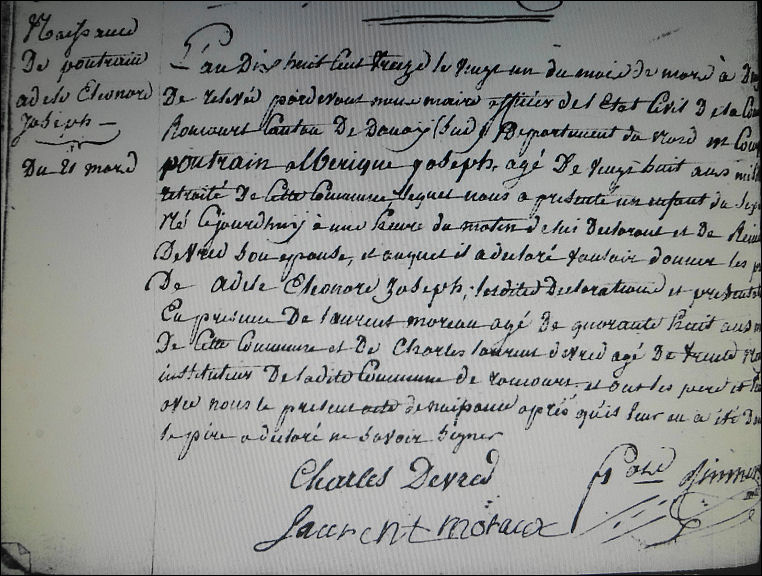 Naissance
De poutrain
adele Eleonore
Joseph
Du 21 mars
L'an Dix huit cent treize le vingt un du mois de mars à
De relevé pardevant nous maire officier de l'Etat Civil De la Com
Roucourt Canton De Douay (Sud) Departement du Nord est Comp
poutrain alberique joseph, agé De vingt huit ans mil
retraité De Cette Commune, lequel nous a presenté un enfant du Sexe
Né Cejourdhuy à une heure du matin de lui Declarant et De Rein
Devred Son epouse, et auquel il a declaré vouloir donner les pr
De adele Eleonore Joseph; lesdites Declarations et presentat
En presence De laurent moreau agé De quarante huit ans m
De Cette Commune et De Charles laurent devred agé De trente
instituteur De ladite Commune de roucourt et ont les pere et te
avec nous le present acte de naissance après qu'il leur en a été
le père a declaré ne Savoir Signer
Charles Devred
Laurent moraux